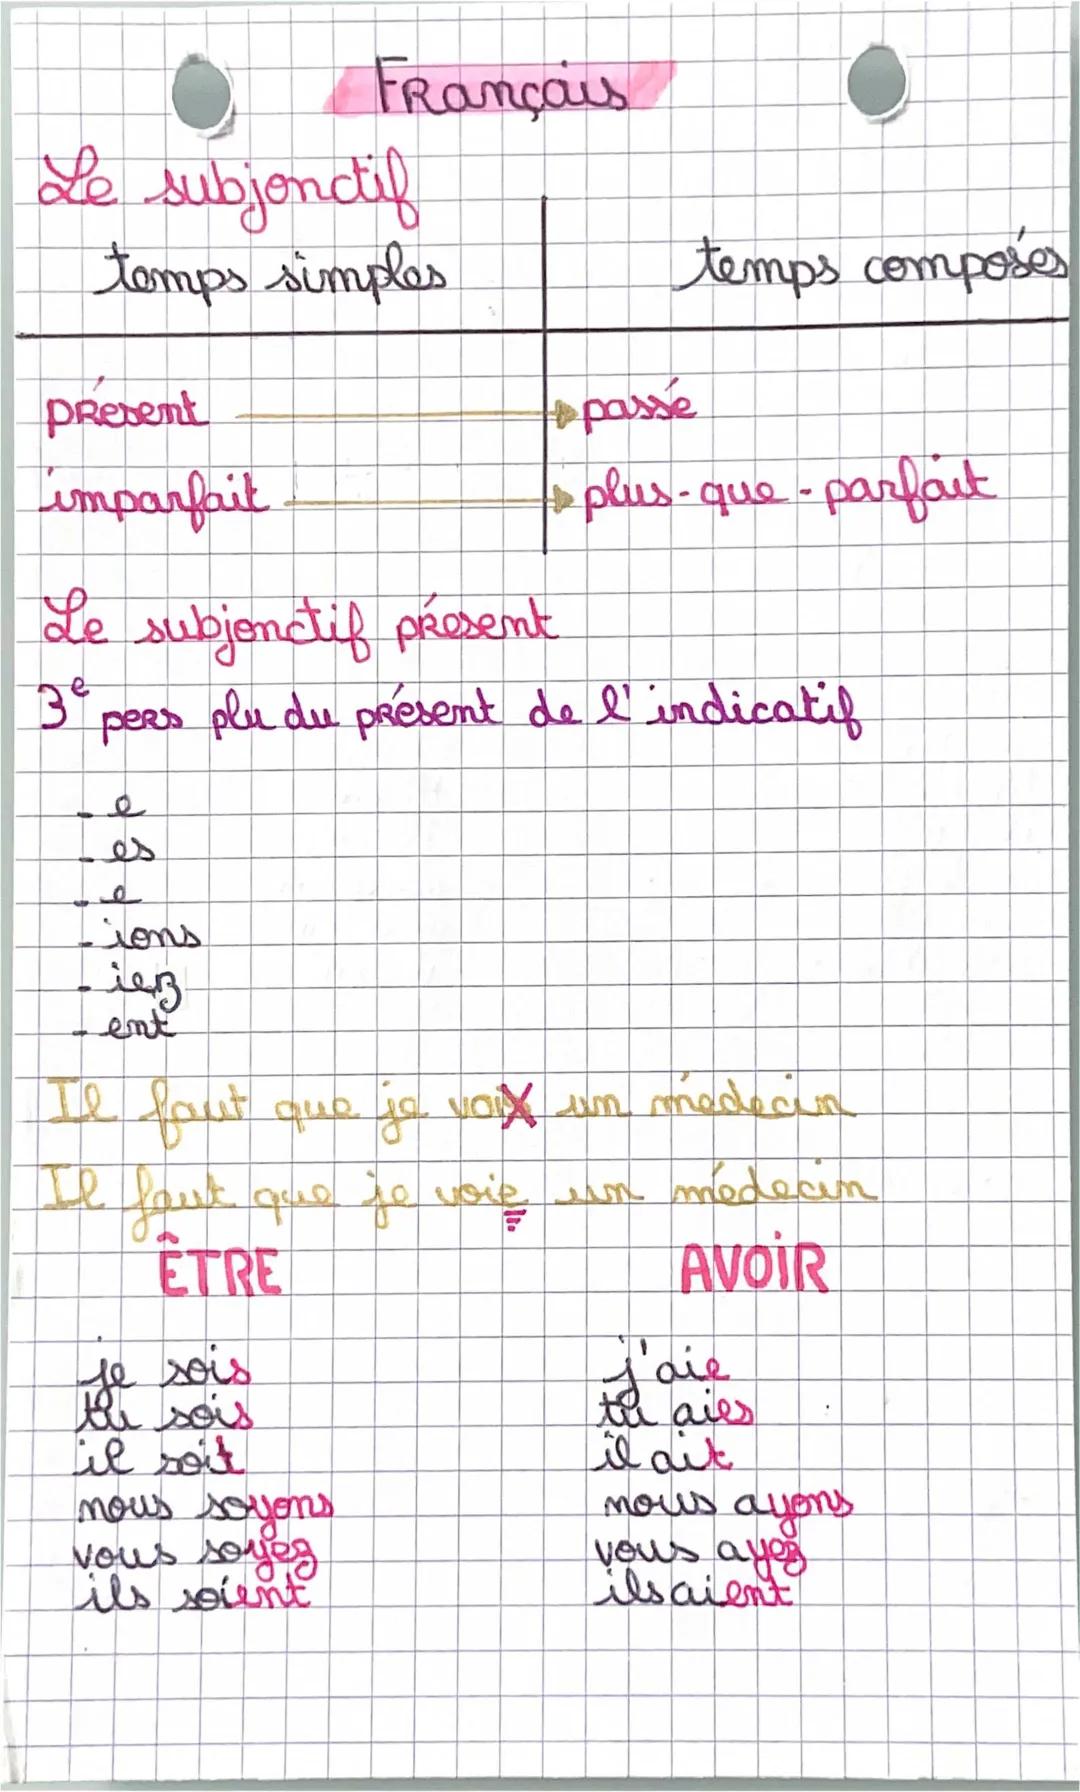 Français
Le subjonctif
temps simples temps composés
présent passé
imparfait plus-que-parfait
Le subjonctif présent
3e pers plu du présent de l'indicatif
- e
- es
- e
- ions
- iez
- ent
Il faut que je voix un médecin
Il faut que je voie un médecin
ÊTRE AVOIR
je sois j'aie
tu sois tu aies
il soit il ait
nous soyons nous ayons
vous soyez vous ayez
ils soient ils aient